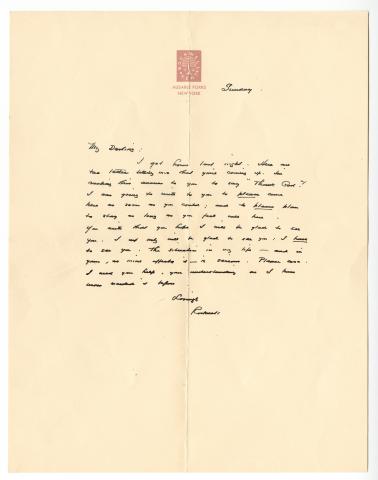 AUSABLE FORKS
NEW YORK
Tuesday
My Darling:
I got home last night. Here are
two letters telling me that you're coming up. I'm
rushing this answer to you to say "Thank God"!
I was going to write to you to please come
here as soon as you could; and to please plan
to stay as long as you feel
You write that you hope I will be glad to see
you. I not only will be glad to see you; I have
to see you. The situation in my life — and in
yours, as mine affects it — is serious. Please come.
I need your help, your understanding as I have
never needed it before.
Lovingly
Rockwell